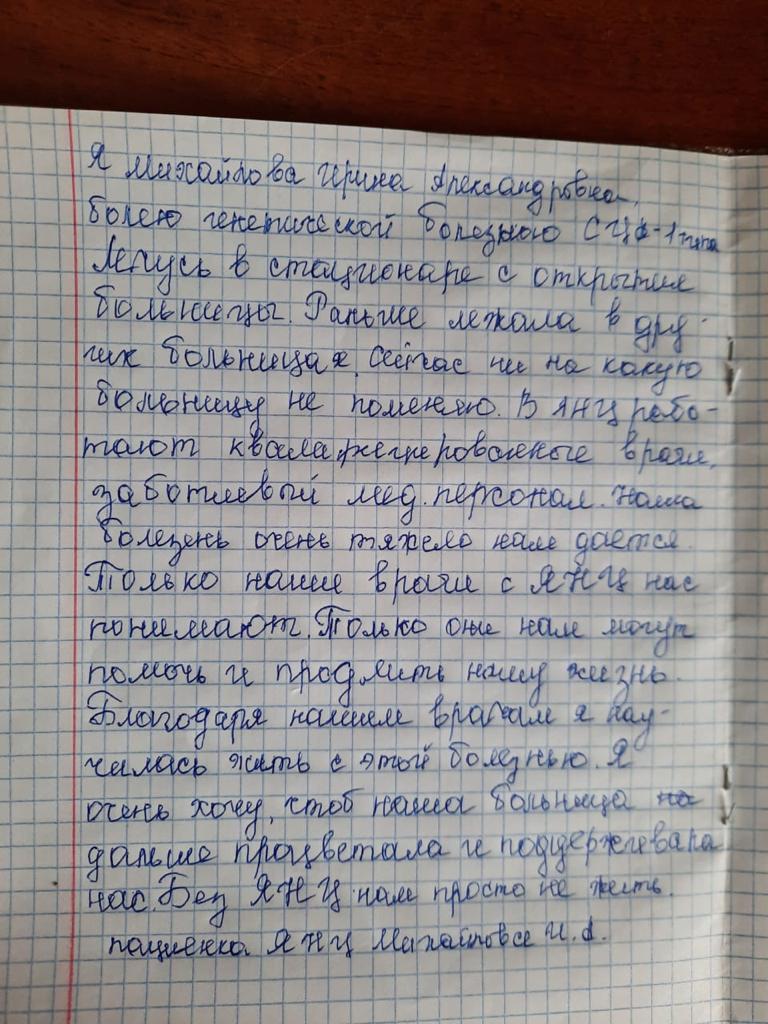 Я Михайлова Ирина Александровна,
болею генетической болезнью СЦА-1 типа
Лечусь в стационаре с открытия
больницы. Раньше лежала в дру-
гих больницах, сейчас ни на какую
больницу не поменяю. В ЯНЦ рабо-
тают квалифицированные врачи,
заботливый мед.персонал. Наша
болезень очень тяжело нам даётся.
Только наши врачи с ЯНЦ нас
понимают. Только они нам могут
помочь и продлить нашу жизнь.
Благодаря нашим врачам я нау-
чилась жить с этой болезнью. Я
очень хочу, чтоб наша больница на
дальше процветала и поддерживала
нас. Без ЯНЦ нам просто не жить.
пациентка ЯНЦ Михайлова И.А.